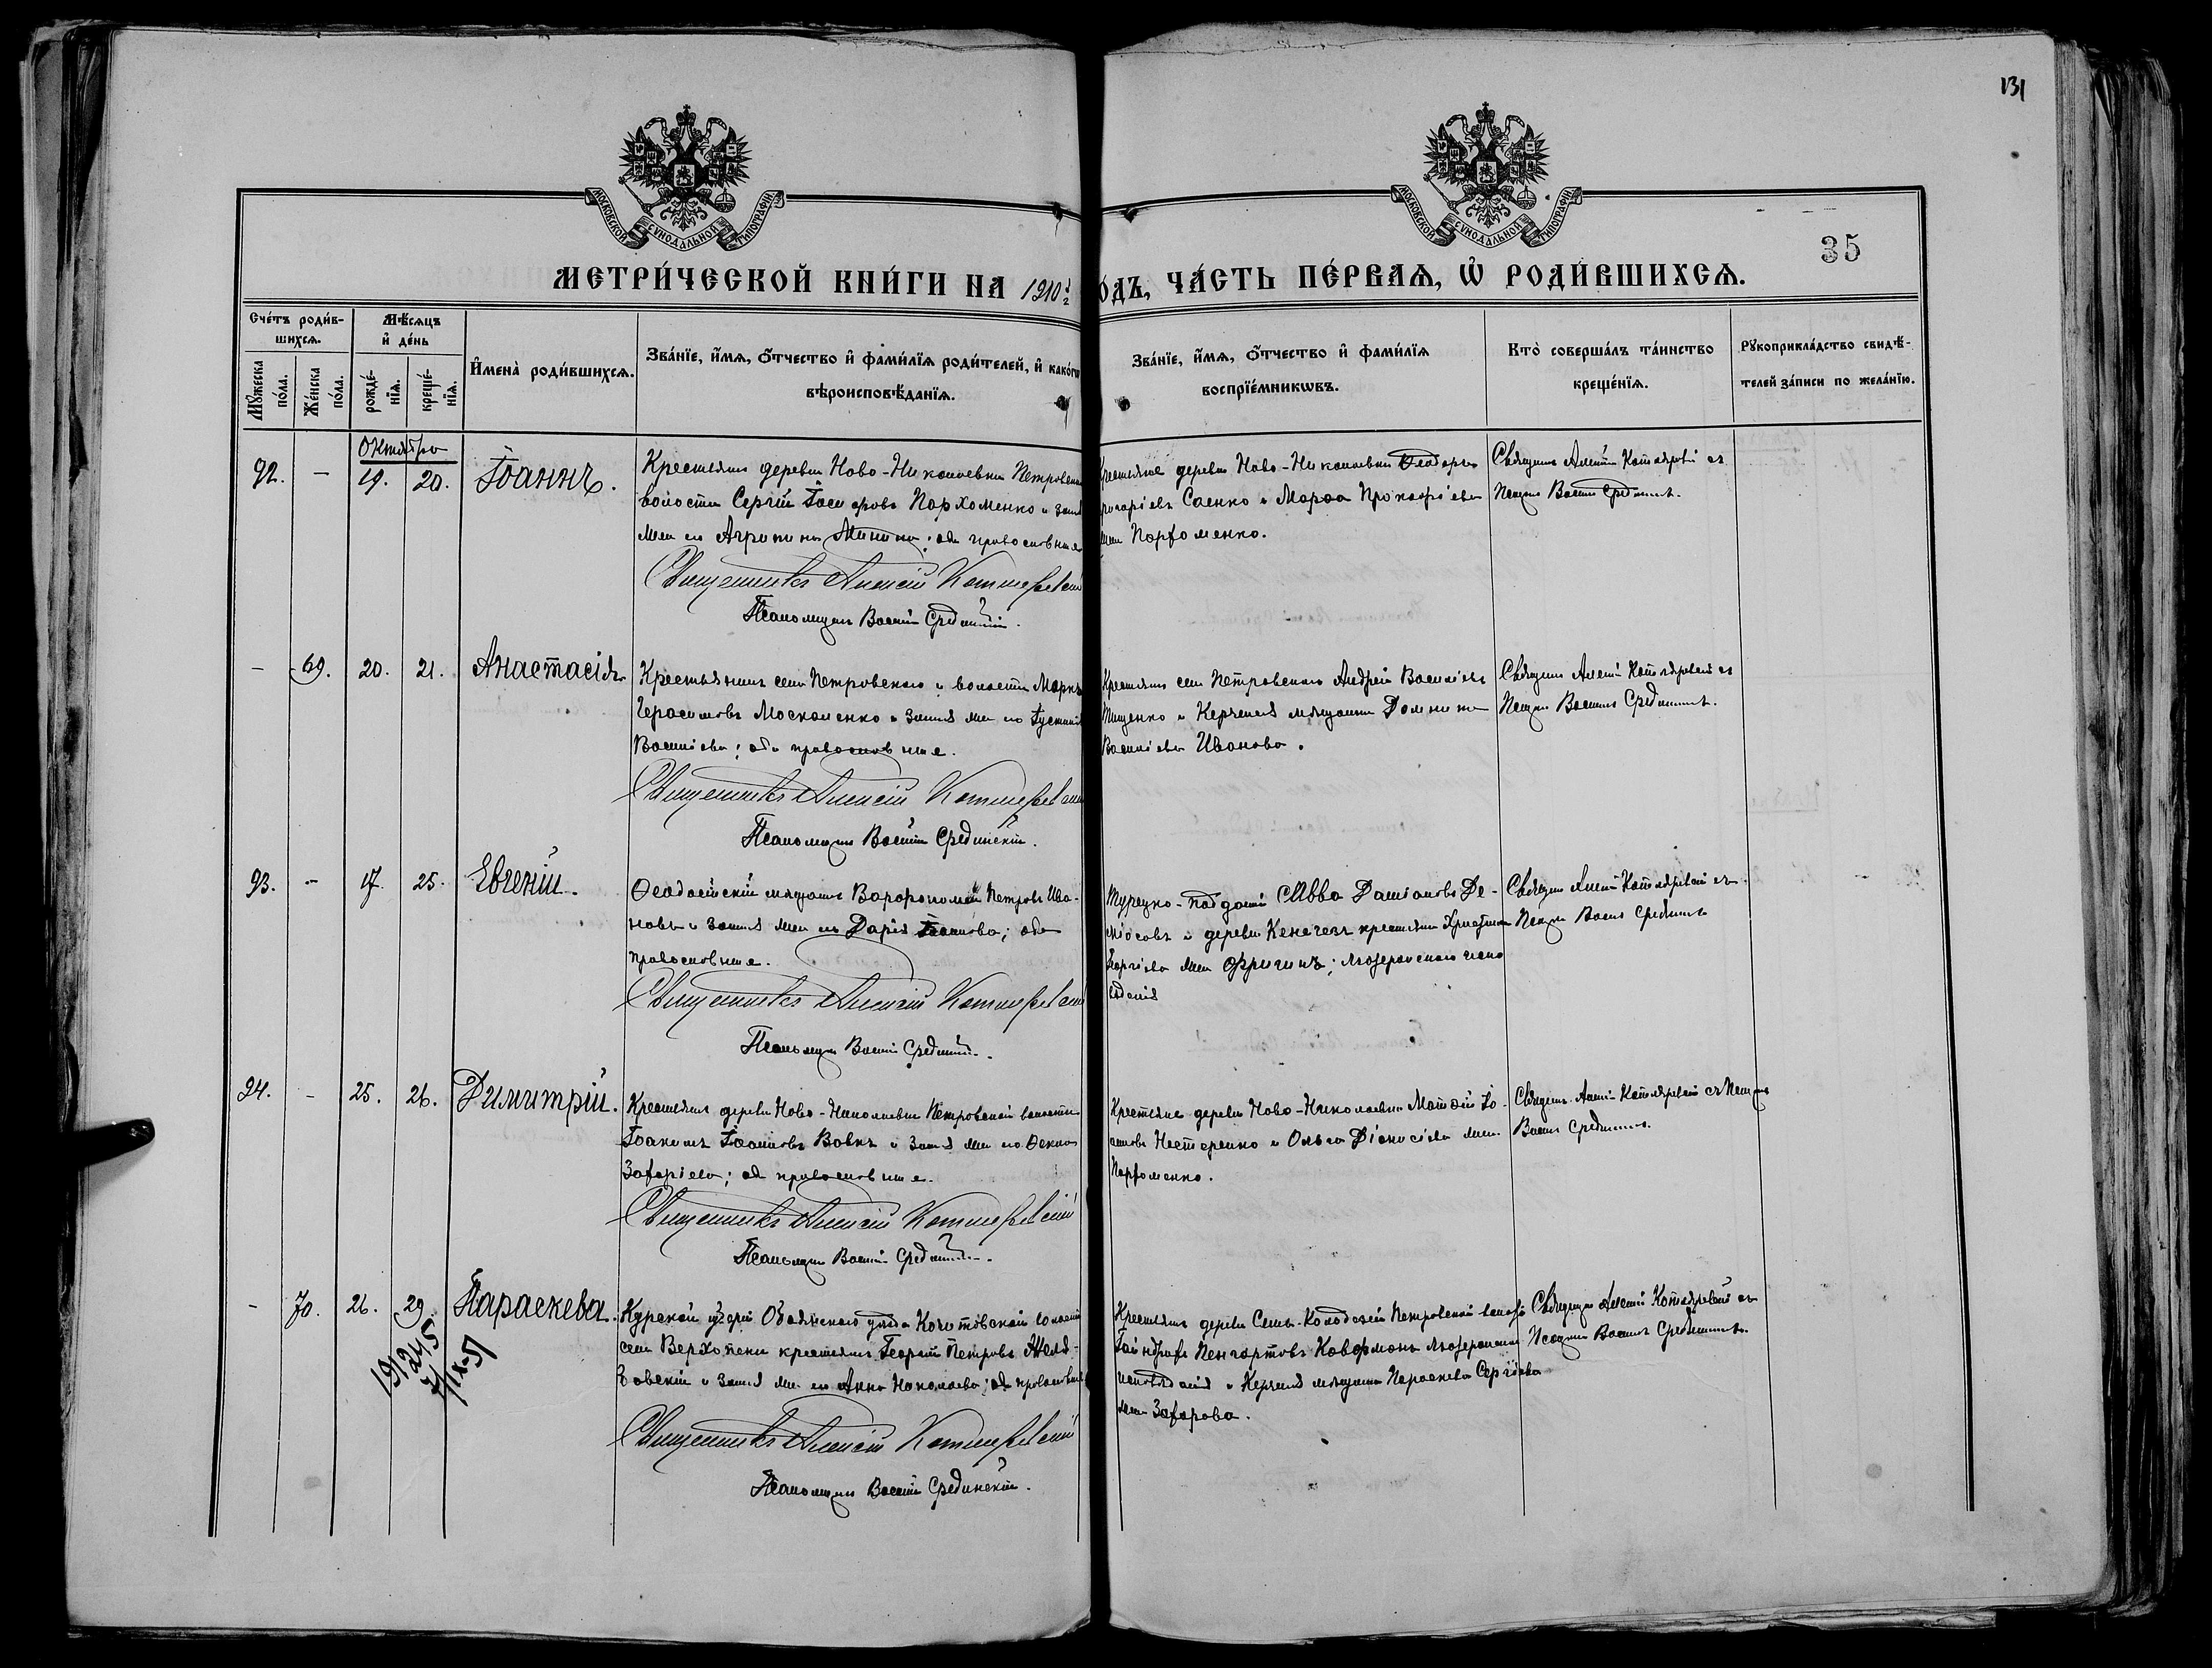 131
МОСКОВСКОЙ СѴНОДАЛЬНОЙ ТИПОГРАФІИ.
МОСКОВСКОЙ СѴНОДАЛЬНОЙ ТИПОГРАФІИ.
35
МЕТРИ́ЧЕСКОЙ КНИ́ГИ НА 1910 ОДЪ, ЧА́СТЬ ПЕ́РВАѦ, Ѡ҆ РОДИ́ВШИХСѦ.
Сче́тъ роди́в-
шихсѧ.
Мꙋ́жеска по́ла.
Же́нска по́ла.
Мѣ́сѧцъ
и҆ де́нь
рожде́-
нїѧ.
креще́-
нїѧ.
И҆мена̀ роди́вшихсѧ.
Зва́нїе, и҆́мѧ, ѻ҆́тчество и҆ фами́лїѧ роди́телей, и҆ како́гѡ
вѣроисповѣ́данїѧ.
Зва́нїе, и҆́мѧ, ѻ҆́тчество и҆ фами́лїѧ
воспрїе́мникѡвъ.
Кто̀ соверша́лъ та́инство
креще́нїѧ.
Рꙋкоприкла́дство свидѣ́-
телей за́писи по жела́нїю.
Октября
92.
-
19.
20.
Іоаннъ.
Крестьянинъ деревни Ново-Николаевки Петровской
волости Сергій Пархоменко и законная
жена его Агрипина; оба православные
Священникъ Алексій Котляревскій
Псаломщикъ Василій Срединскій.
Крестьяне деревни Ново-Николаевки Ѳеодоръ
Саенко и Марѳа Прокофіева
Пархоменко.
Священникъ Алексій Котляревскій съ
Псаломщ. Василіемъ Срединскимъ.
-
69.
20.
21.
Анастасія
Крестьянинъ села Петровскаго и волости Маркъ
Герасимовъ Москаленко и законная жена его Іустинія
Василіева; оба православные.
Священникъ Алексій Котляревскій
Псаломщикъ Василій Срединскій.
Крестьянинъ села Петровскаго Андрей Василіевъ
Тищенко и Керченская мѣщанка Домникія
Василіева Иванова.
Священникъ Алексій Котляревскій съ
Псаломщ. Василіемъ Срединскимъ.
93.
-
17.
25.
Евгеній.
Ѳеодосійскій мѣщанинъ Варѳоломей Петровъ Ива-
новъ и законная жена его Дарія Іоаннова; оба
православные.
Священникъ Алексій Котляревскій
Псаломщикъ Василій Срединскій.
Турецко-подданный Савва Даміановъ
и деревни Кенегезъ крестьянка Христина
Георгіева; лютеранскаго испо
вѣданія
Священникъ Алексій Котляревскій съ
Псаломщ. Василіемъ Срединскимъ
94.
-
25.
26.
Димитрій.
Крестьянинъ деревни Ново-Николаевки Петровской волости
Іоакимъ Іоанновъ Вовкъ и законная жена его Ѳекла
Захаріева; оба православные.
Священникъ Алексій Котляревскій
Псаломщикъ Василій Срединскій.
Крестьяне деревни Ново-Николаевки Матѳей Іо-
анновъ Нестеренко и Ольга Діонисіева
Пархоменко.
Священникъ Алексій Котляревскій съ Псаломщ.
Василіемъ Срединскимъ.
-
70.
26.
29.
Параскева.
1912 г. 1245
7/IX-51
Курской губерніи Обоянскаго уѣзда Кочетовской волости
села Верхопенья крестьянинъ Георгій Петровъ
и законная жена его Анна Николаева; оба православные
Священникъ Алексій Котляревскій
Псаломщикъ Василій Срединскій.
Крестьянинъ деревни Семь-Колодезей Петровской волости
Гейнрихъ Кофманъ лютеранскаго
исповѣданія и Керченская мѣщанка Параскева Сергіева
Захарова.
Священникъ Алексій Котляревскій съ
Псаломщ. Василіемъ Срединскимъ.